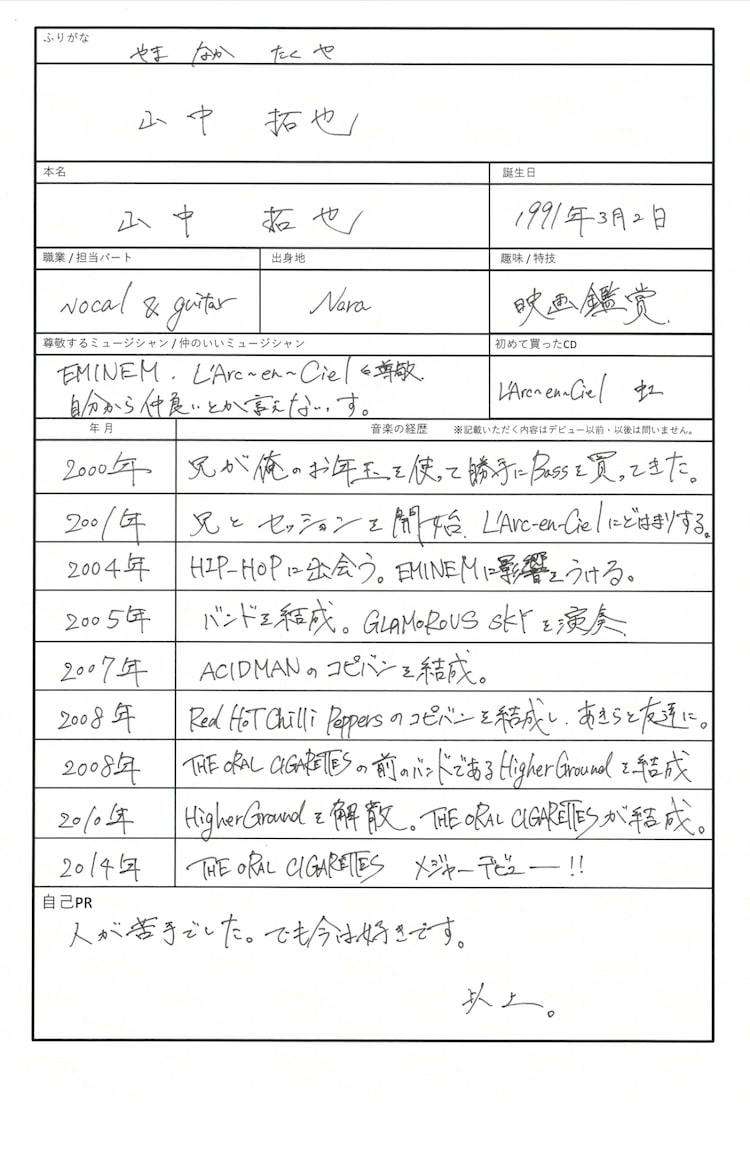 ふりがな
やま なか たくや
山中 拓也
本名
誕生日
山中 拓也
1991年3月2日
職業 / 担当パート
出身地
趣味 / 特技
vocal & guitar
Nara
映画鑑賞.
尊敬するミュージシャン / 仲のいいミュージシャン
初めて買ったCD
EMINEM. L'Arc~en~Cielを尊敬.
自分から仲良いとか言えないっす。
L'Arc~en~Ciel 虹
年 月
音楽の経歴 ※記載いただく内容はデビュー以前・以後は問いません。
2000年 兄が俺のお年玉を使って勝手にBassを買ってきた。
2001年 兄とセッションを開始. L'Arc-en-Cielにどはまりする。
2004年 HIP-HOPに出会う。EMINEMに影響をうける。
2005年 バンドを結成。GLAMOROUS SKYを演奏
2007年 ACIDMANのコピバンを結成。
2008年 Red HoT Chilli Peppersのコピバンを結成し、あきらと友達に。
2008年 THE ORAL CIGARETTESの前のバンドであるHigherGroundを結成
2010年 HigherGroundを解散。THE ORAL CIGARETTESが結成。
2014年 THE ORAL CIGARETTES メジャーデビュー!!
自己PR
人が苦手でした。でも今は好きです。
以上。